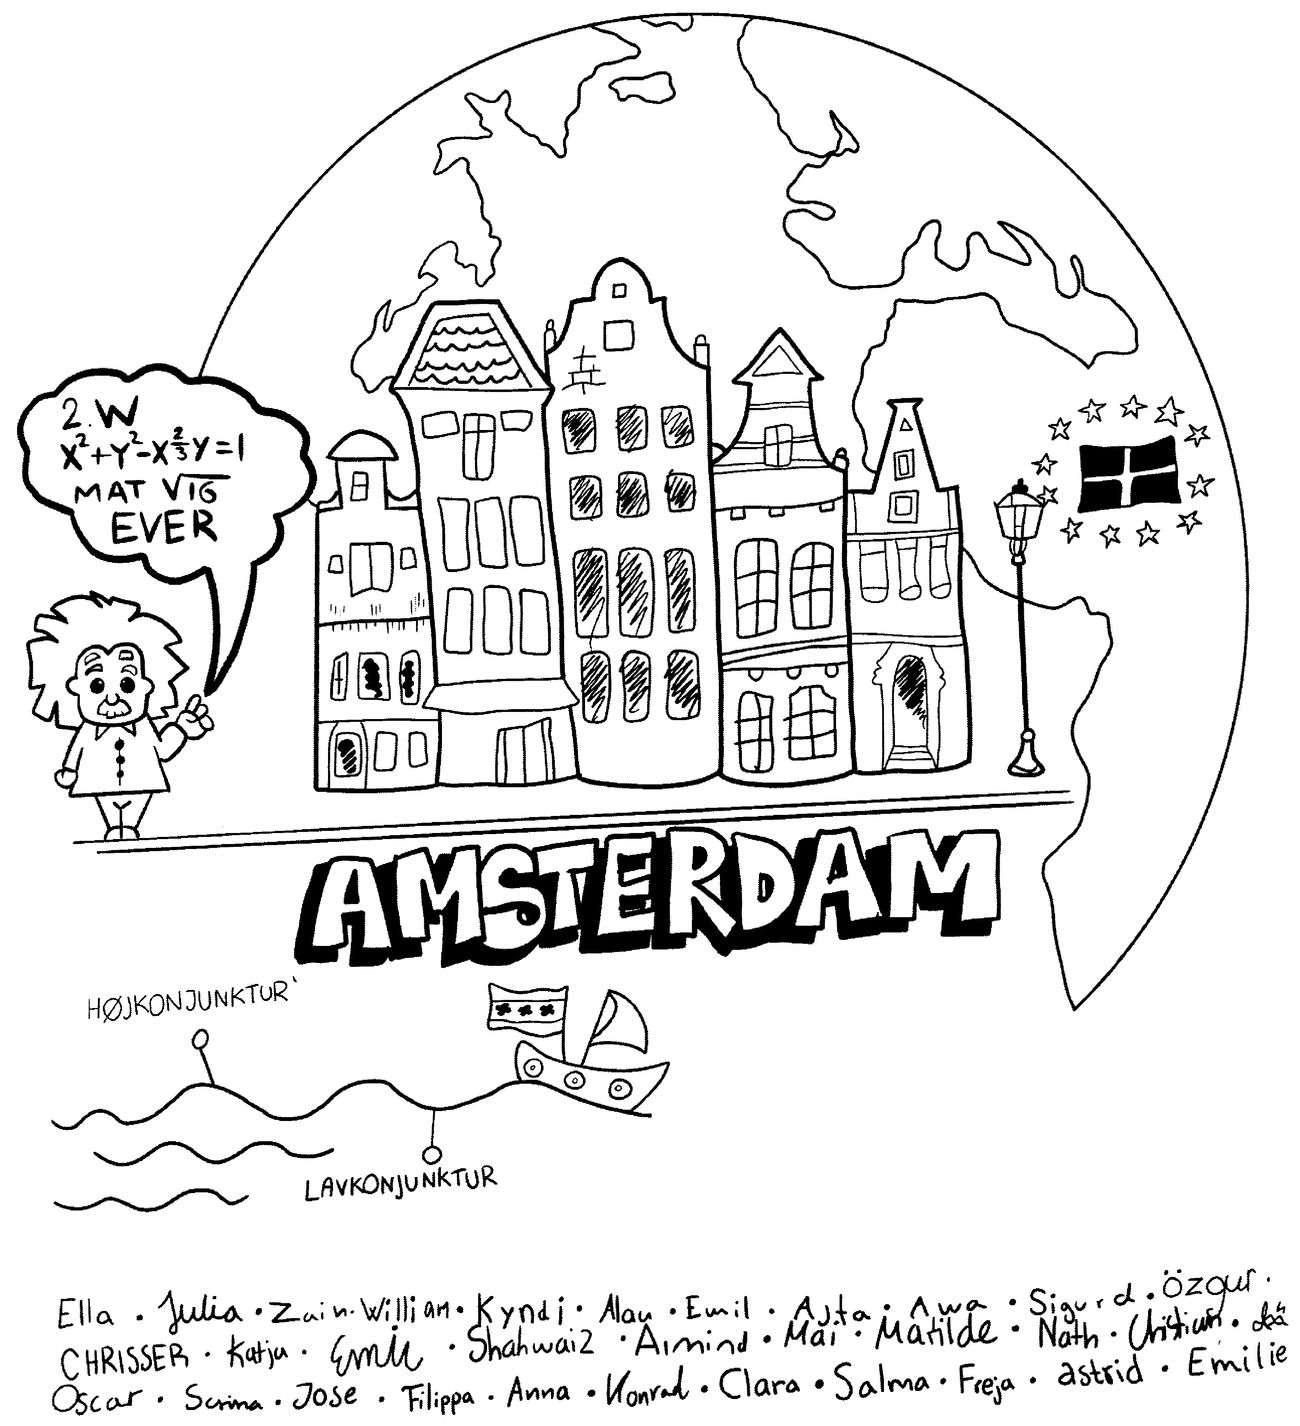 2.W
X²+Y²-X⅔Y=1
MAT √16
EVER
AMSTERDAM
HØJKONJUNKTUR
LAVKONJUNKTUR
Ella · Julia · Zain · William · Kyndi · Alau · Emil · Asta · Awa · Sigurd · Özgur ·
CHRISSER · Katja · Emil · Shahwaiz · Aimind · Mai · Matilde · Nath · Christian ·
Oscar · Serina · JOSE · Filippa · Anna · Konrad · Clara · Salma · Freja · astrid · Emilie